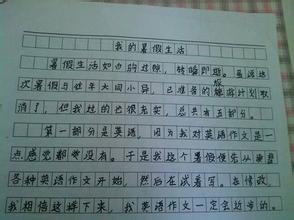 我的暑假生活
暑假生活如白驹过隙，转瞬即逝。虽说这
次暑假与往年大同小异，已准备的旅游计划取
消了，但我过的也很充实，总共有五部分。
第一部分是英语，因为我对英语作文是一
点感觉都没有。于是我这个暑假便先从
各种英语作文开始，然后在试着写。在修改，
我相信这样下来，我英语作文一定会进步的。